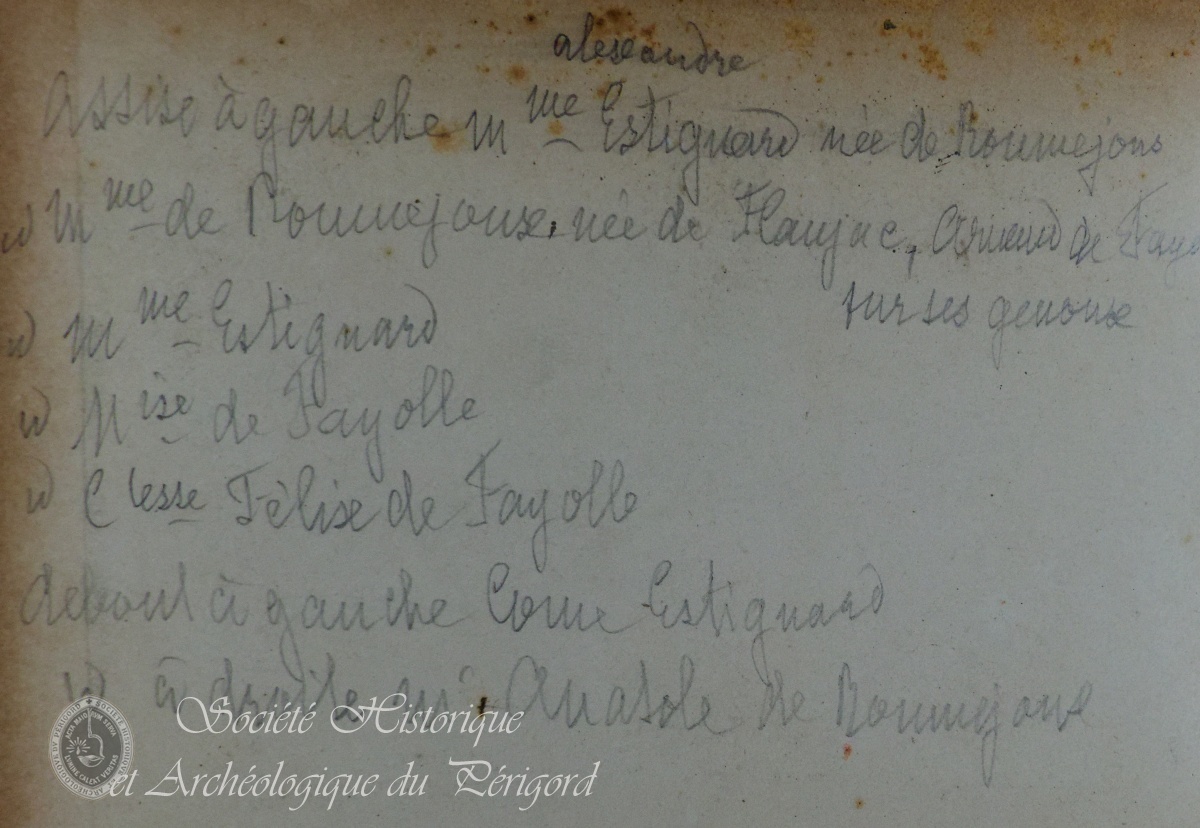 alexandre
Assise à gauche Mme Estignard née de Roumejons
id Mme de Roumejoux, née de Flaujac, Armand de Fay
sur ses genoux
id Mme Estignard
id Mise de Fayolle
id Ctesse Félix de Fayolle
debout à gauche Come Estignard
id à droite mr Anatole de Roumejoux
Société Historique
et Archéologique du Périgord